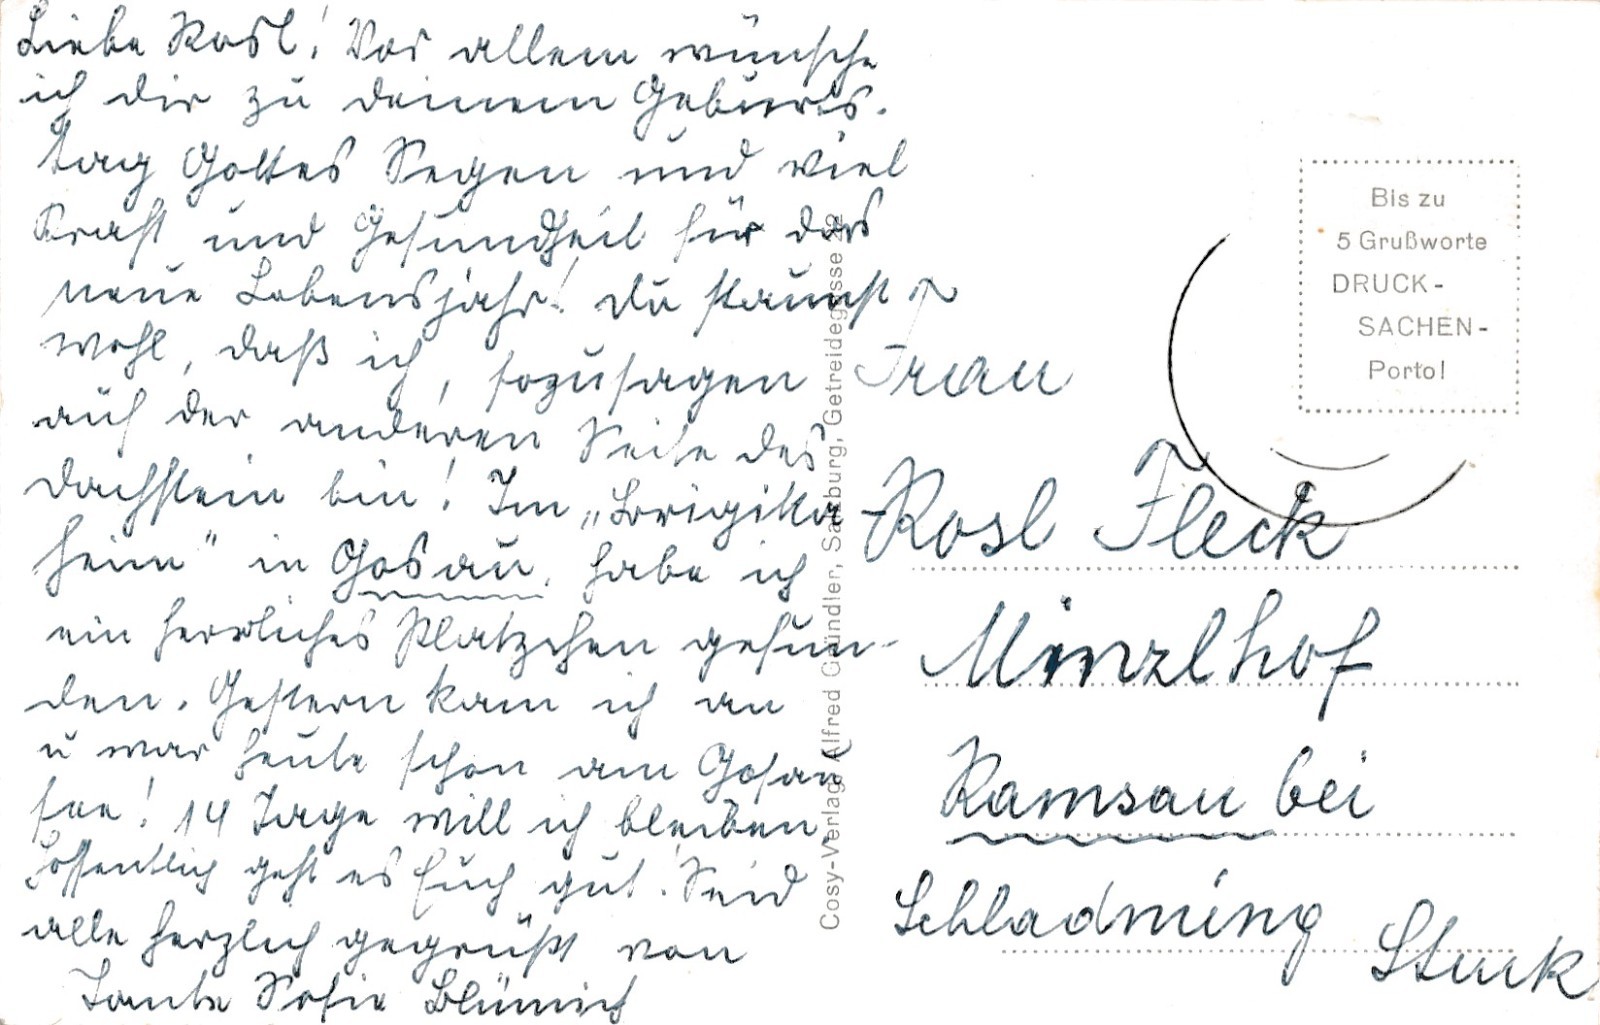 Liebe Rosl! Vor allem wünsche
ich dir zu deinem Geburts-
tag Gottes Segen und viel
Kraft und Gesundheit für das
neue Lebensjahr! Du staunst
wohl, daß ich, sozusagen
auf der anderen Seite des
Dachstein bin! Im „Brigitta
heim" in Gosau, habe ich
ein herrliches Platzchen gefun-
den. Gestern kam ich an
u war heute schon am Gosau
see! 14 Tage will ich bleiben,
Hoffentlich geht es Euch gut! Seid
alle herzlich gegrüßt von
Tante Sofie
Cosy-Verlag Alfred Gründler, Salzburg, Getreidegasse 22
Bis zu
5 Grußworte
DRUCK-
SACHEN-
Porto!
Frau
Rosl Fleck
Minzlhof
Ramsau bei
Schladming